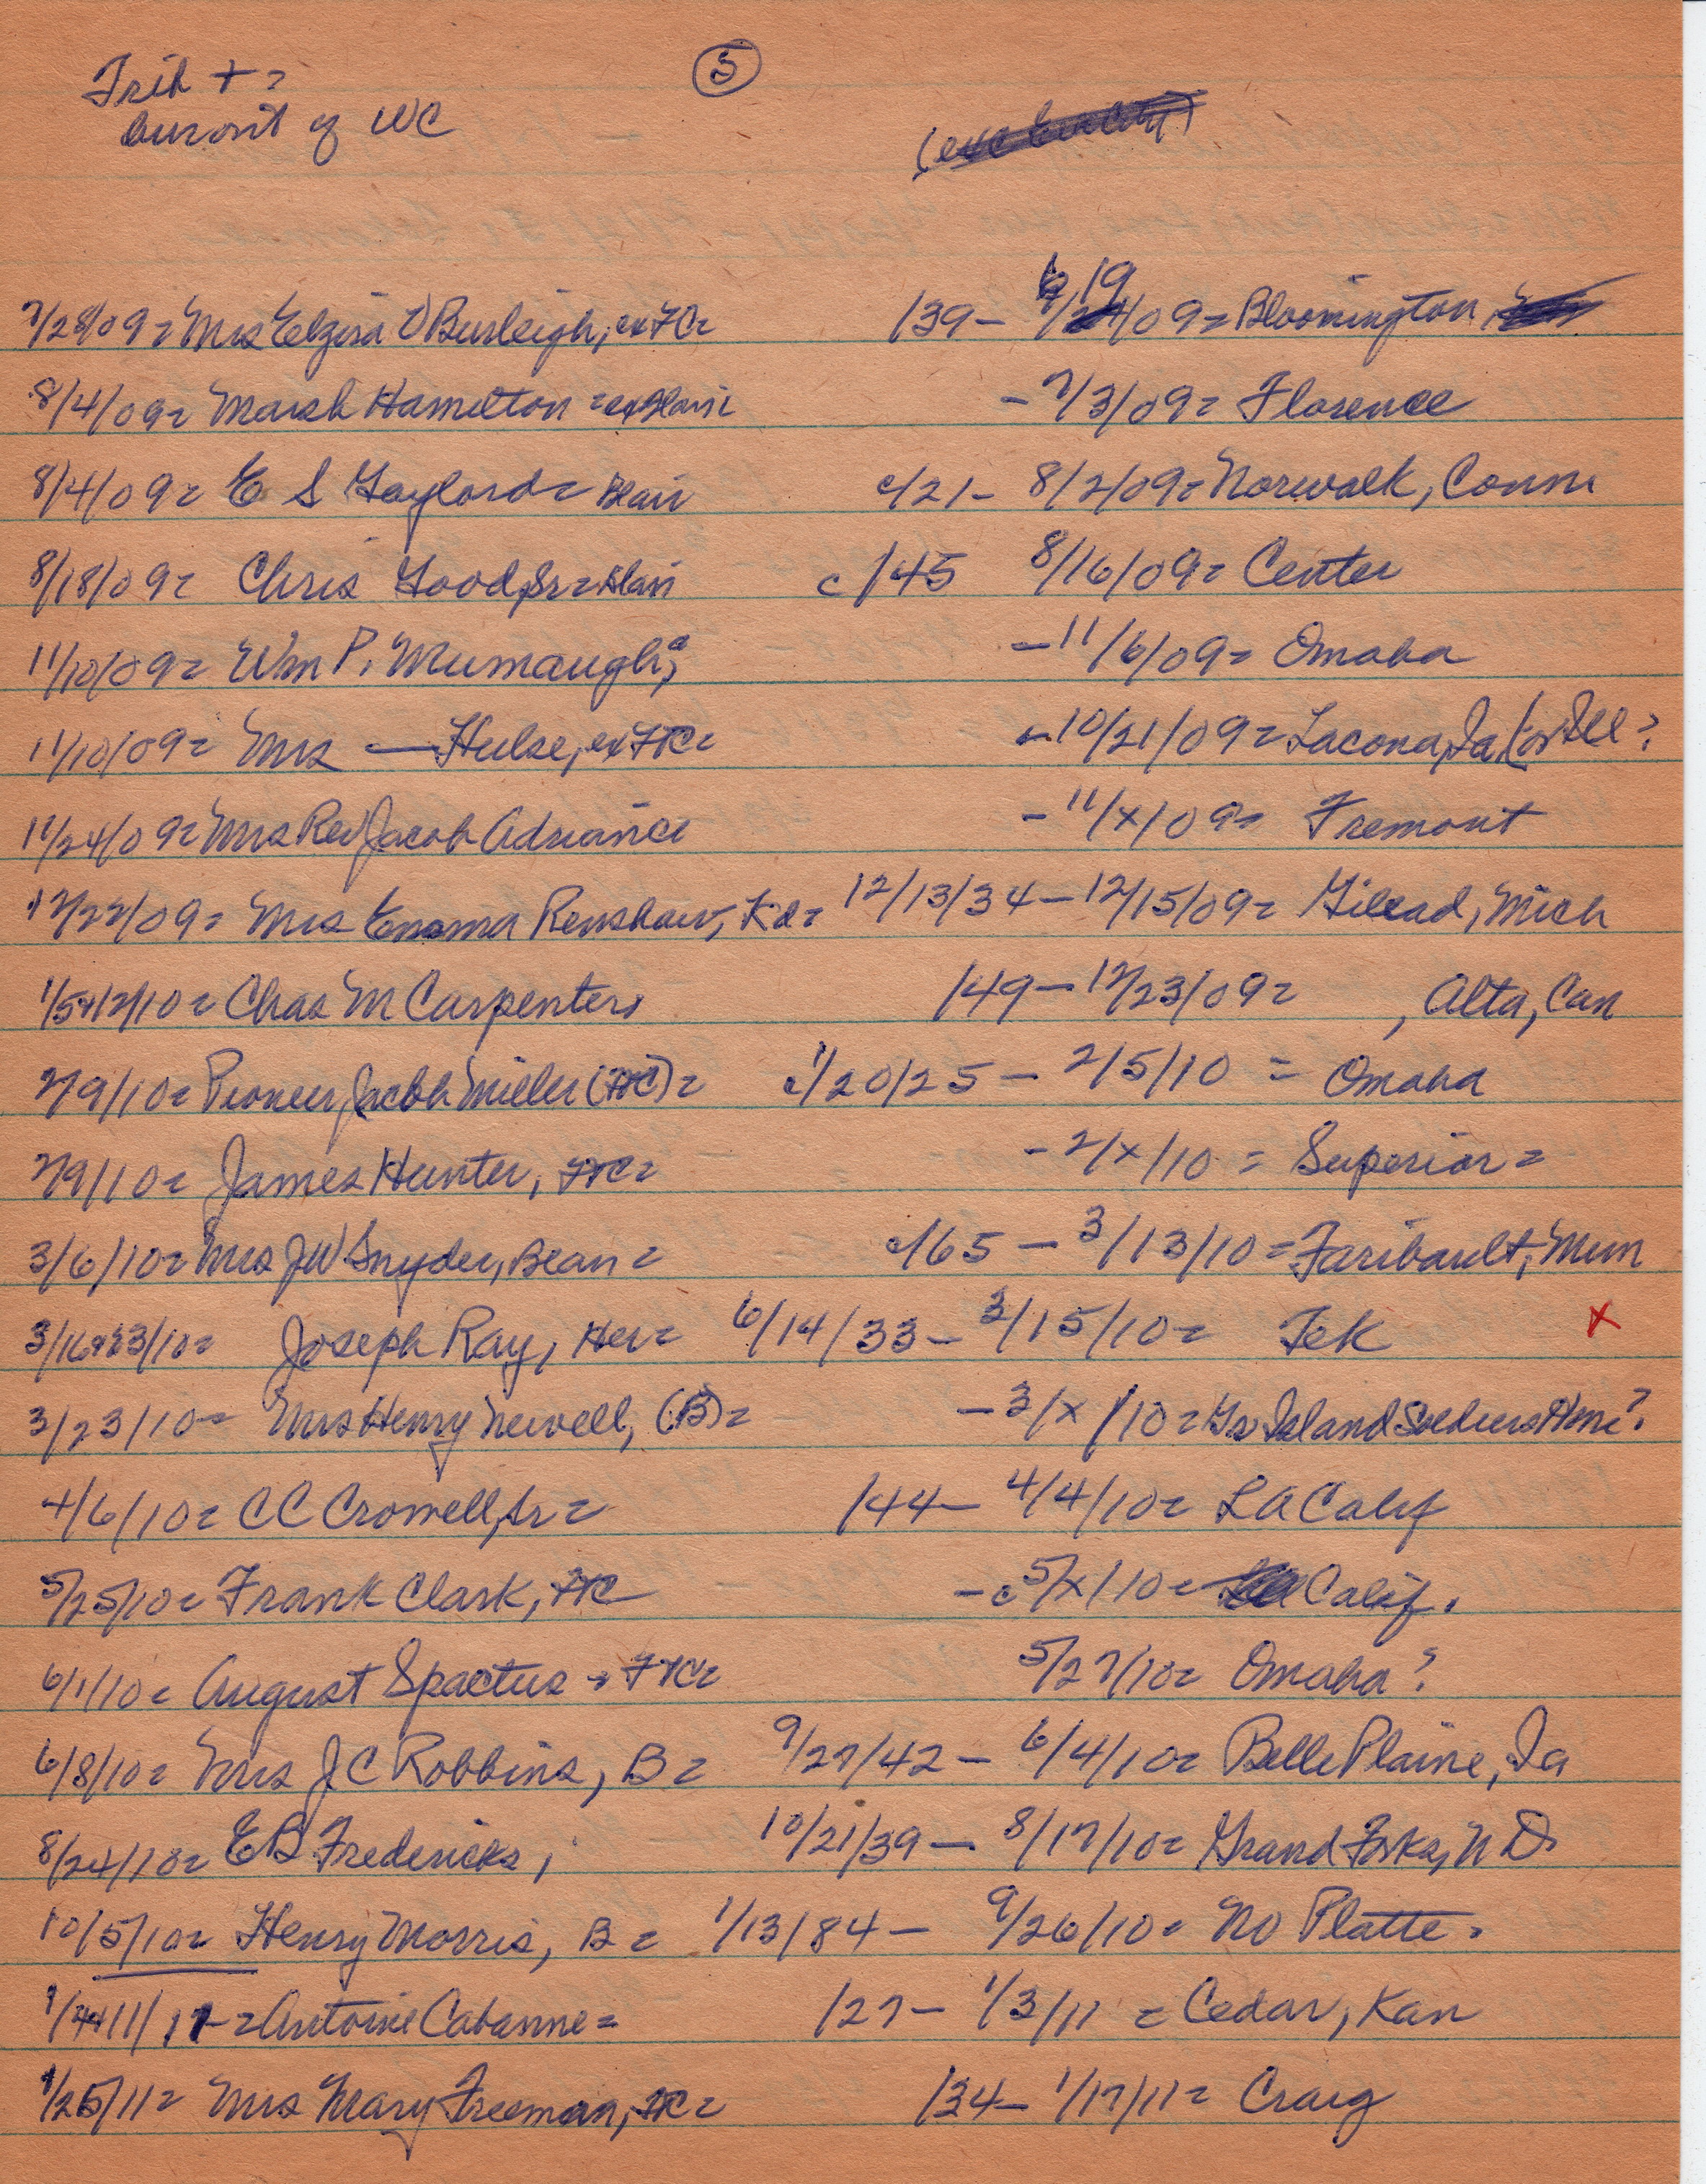 Trib + =
burout of WC
5
7/28/09= Mrs Elzina O Burleigh, ex FC= /39- 6/19/09= Bloomington
8/4/09= Marsh Hamilton = ex Blair - 7/3/09= Florence
8/4/09= E S Gaylord= Blair c/21- 8/2/09= Norwalk, Conn
8/18/09= Chris Good, Sr= Blair c/45 8/16/09= Center
11/10/09= Wm P. Mumaugh, - 11/6/09= Omaha
11/10/09= Mrs — Hulse, ex FTC= - 10/21/09= Lacona, Ia (or Ill?
11/24/09= Mrs Rev Jacob Adriance - 11/x/09= Fremont
12/22/09= Mrs Emma Renshaw, Kd= 12/13/34-12/15/09= Gilead, Mich
1/5+12/10= Chas M Carpenter, /49-12/23/09= , Alta, Can
2/9/10= Pioneer, Jacob Miller (FTC)= c1/20/25 - 2/5/10 = Omaha
2/9/10= James Hunter, FTC= - 2/x/10 = Superior=
3/6/10= Mrs JW Snyder, Bean= c/65 - 3/13/10= Faribault, Minn
3/16+23/10= Joseph Ray, Her= 6/14/33- 3/15/10= Tek x
3/23/10= Mrs Henry Newell, (B)= - 3/x/10= Gr Island Soldiers Home?
4/6/10= CC Crowell, Sr= /44- 4/4/10= LA Calif
5/25/10= Frank Clark, FTC - c5/x/10= Calif.
6/1/10= August Spaetus = FTC= 5/27/10= Omaha?
6/8/10= Mrs J C Robbins, B= 9/27/42- 6/4/10= Belle Plaine, Ia
8/24/10= EB Fredericks, 10/21/39- 8/17/10= Grand Forks, N D
10/5/10= Henry Morris, B= 1/13/84- 9/26/10= No Platte.
1/4+11/11= Antoine Cabanne= /27- 1/3/11 = Cedar, Kan
1/25/11= Mrs Mary Freeman, FTC= /34- 1/17/11= Craig